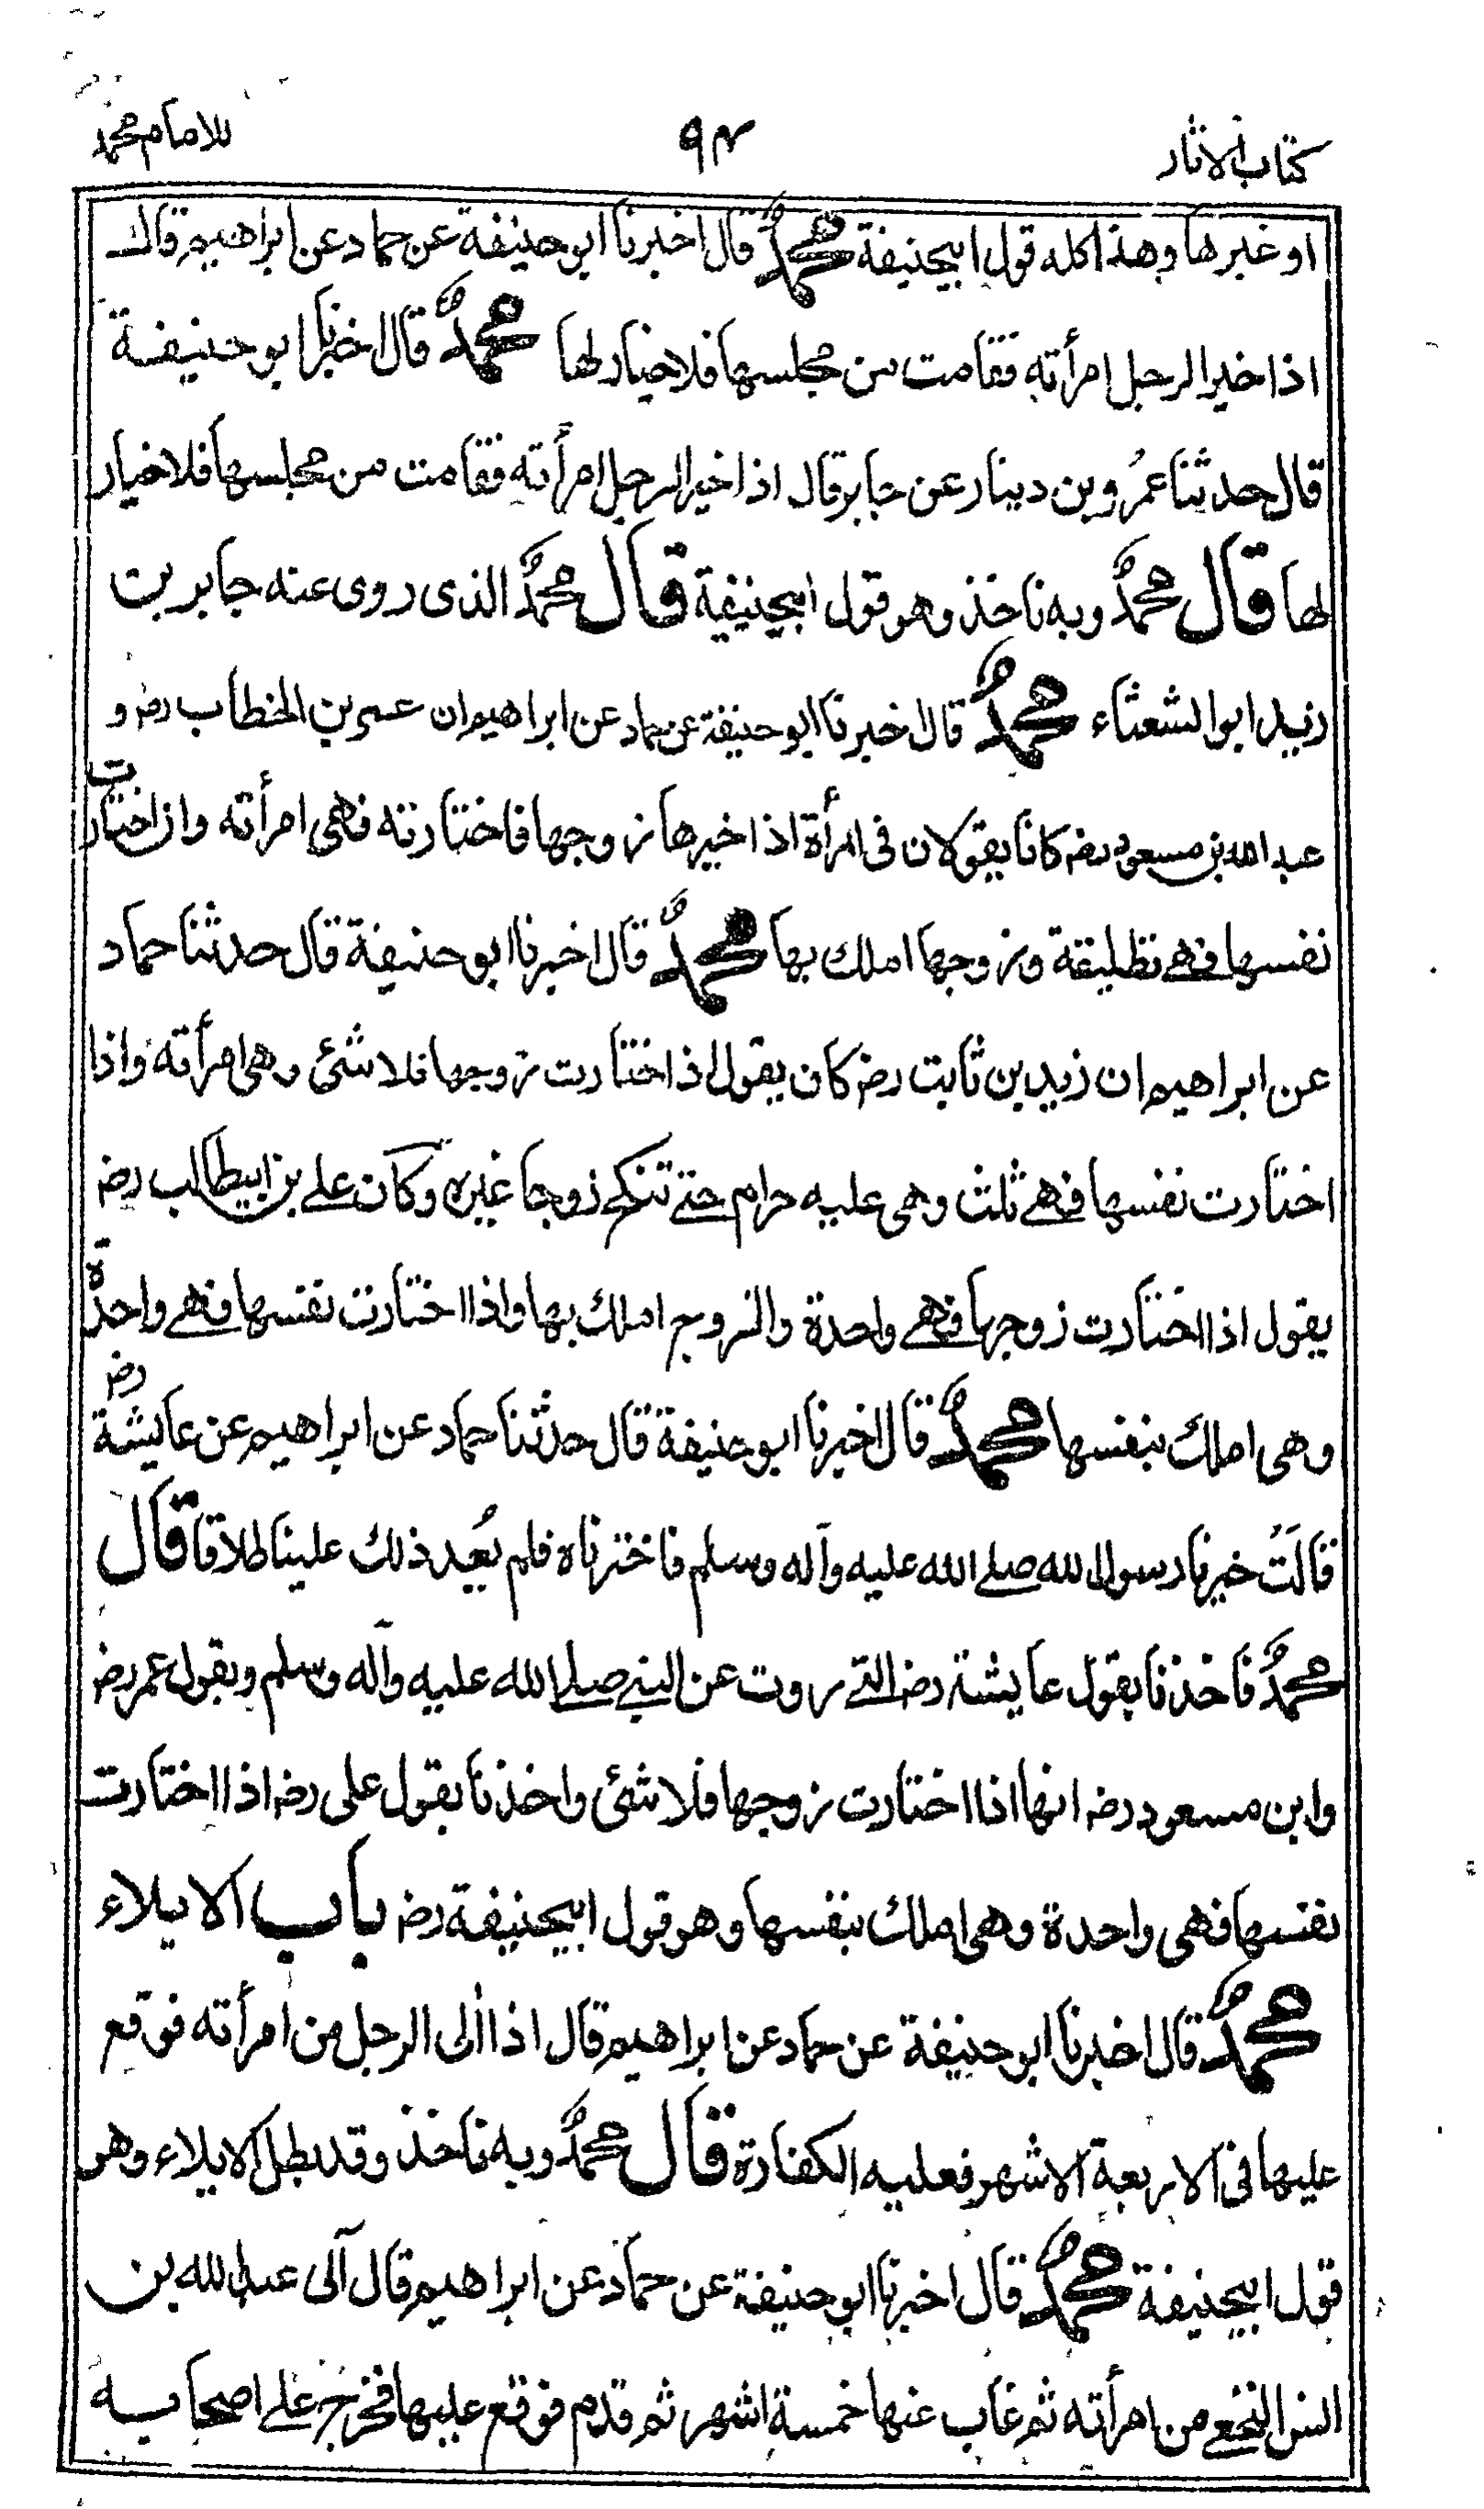 كتاب الاثار ٩٣ للامام محمد
او غيرها وهذا كله قول ابيحنيفة محمدٌ قال اخبرنا ابو حنيفة عن حماد عن ابراهيم قال
اذا خير الرجل امرأته فقامت من مجلسها فلا خيار لها محمدٌ قال اخبرنا ابو حنيفة
قال حدثنا عمرو بن دينار عن جابر قال اذا خير الرجل امرأته فقامت من مجلسها فلا خيار
لها قال محمدٌ وبه ناخذ وهو قول ابيحنيفة قال محمدٌ الذى روى عنه جابر بن
زيد ابو الشعثاء محمدٌ قال اخبرنا ابو حنيفة عن حماد عن ابراهيم ان عمر بن الخطاب رض و
عبد الله بن مسعود رض كانا يقولان فى امرأة اذا خيرها زوجها فاختارته فهى امرأته وان اختارت
نفسها فهے تطليقة وزوجها املك بها محمدٌ قال اخبرنا ابو حنيفة قال حدثنا حماد
عن ابراهيم ان زيد بن ثابت رض كان يقول اذا اختارت زوجها فلا شئى وهى امرأته واذا
اختارت نفسها فهے ثلث وهى عليه حرام حتے تنكح زوجا غيره وكان علے بن ابيطالب رض
يقول اذا اختارت زوجها فهے واحدة والزوج املك بها واذا اختارت نفسها فهے واحدة
وهى املك بنفسها محمدٌ قال اخبرنا ابو حنيفة قال حدثنا حماد عن ابراهيم عن عايشة رض
قالَتْ خيرنا رسول الله صلے الله عليه وآله وسلم فاخترناه فلم يُعد ذلك علينا طلاقا قال
محمدٌ فاخذنا بقول عايشة رض التے روت عن النبے صلے الله عليه وآله وسلم وبقول عمر رض
وابن مسعود رض انها اذا اختارت زوجها فلا شئى واخذنا بقول على رض اذا اختارت
نفسها فهى واحدة وهى املك بنفسها وهو قول ابيحنيفة رض باب الايلاء
محمدٌ قال اخبرنا ابو حنيفة عن حماد عن ابراهيم قال اذا الى الرجل من امرأته فوقع
عليها فى الاربعة الاشهر فعليه الكفارة قال محمدٌ وبه ناخذ وقد بطل الايلاء وهو
قول ابيحنيفة محمدٌ قال اخبرنا ابو حنيفة عن حماد عن ابراهيم قال آلى عبد الله بن
انس النخعے من امرأته ثم غاب عنها خمسة اشهر ثم قدم فوقع عليها فخرج علے اصحابه